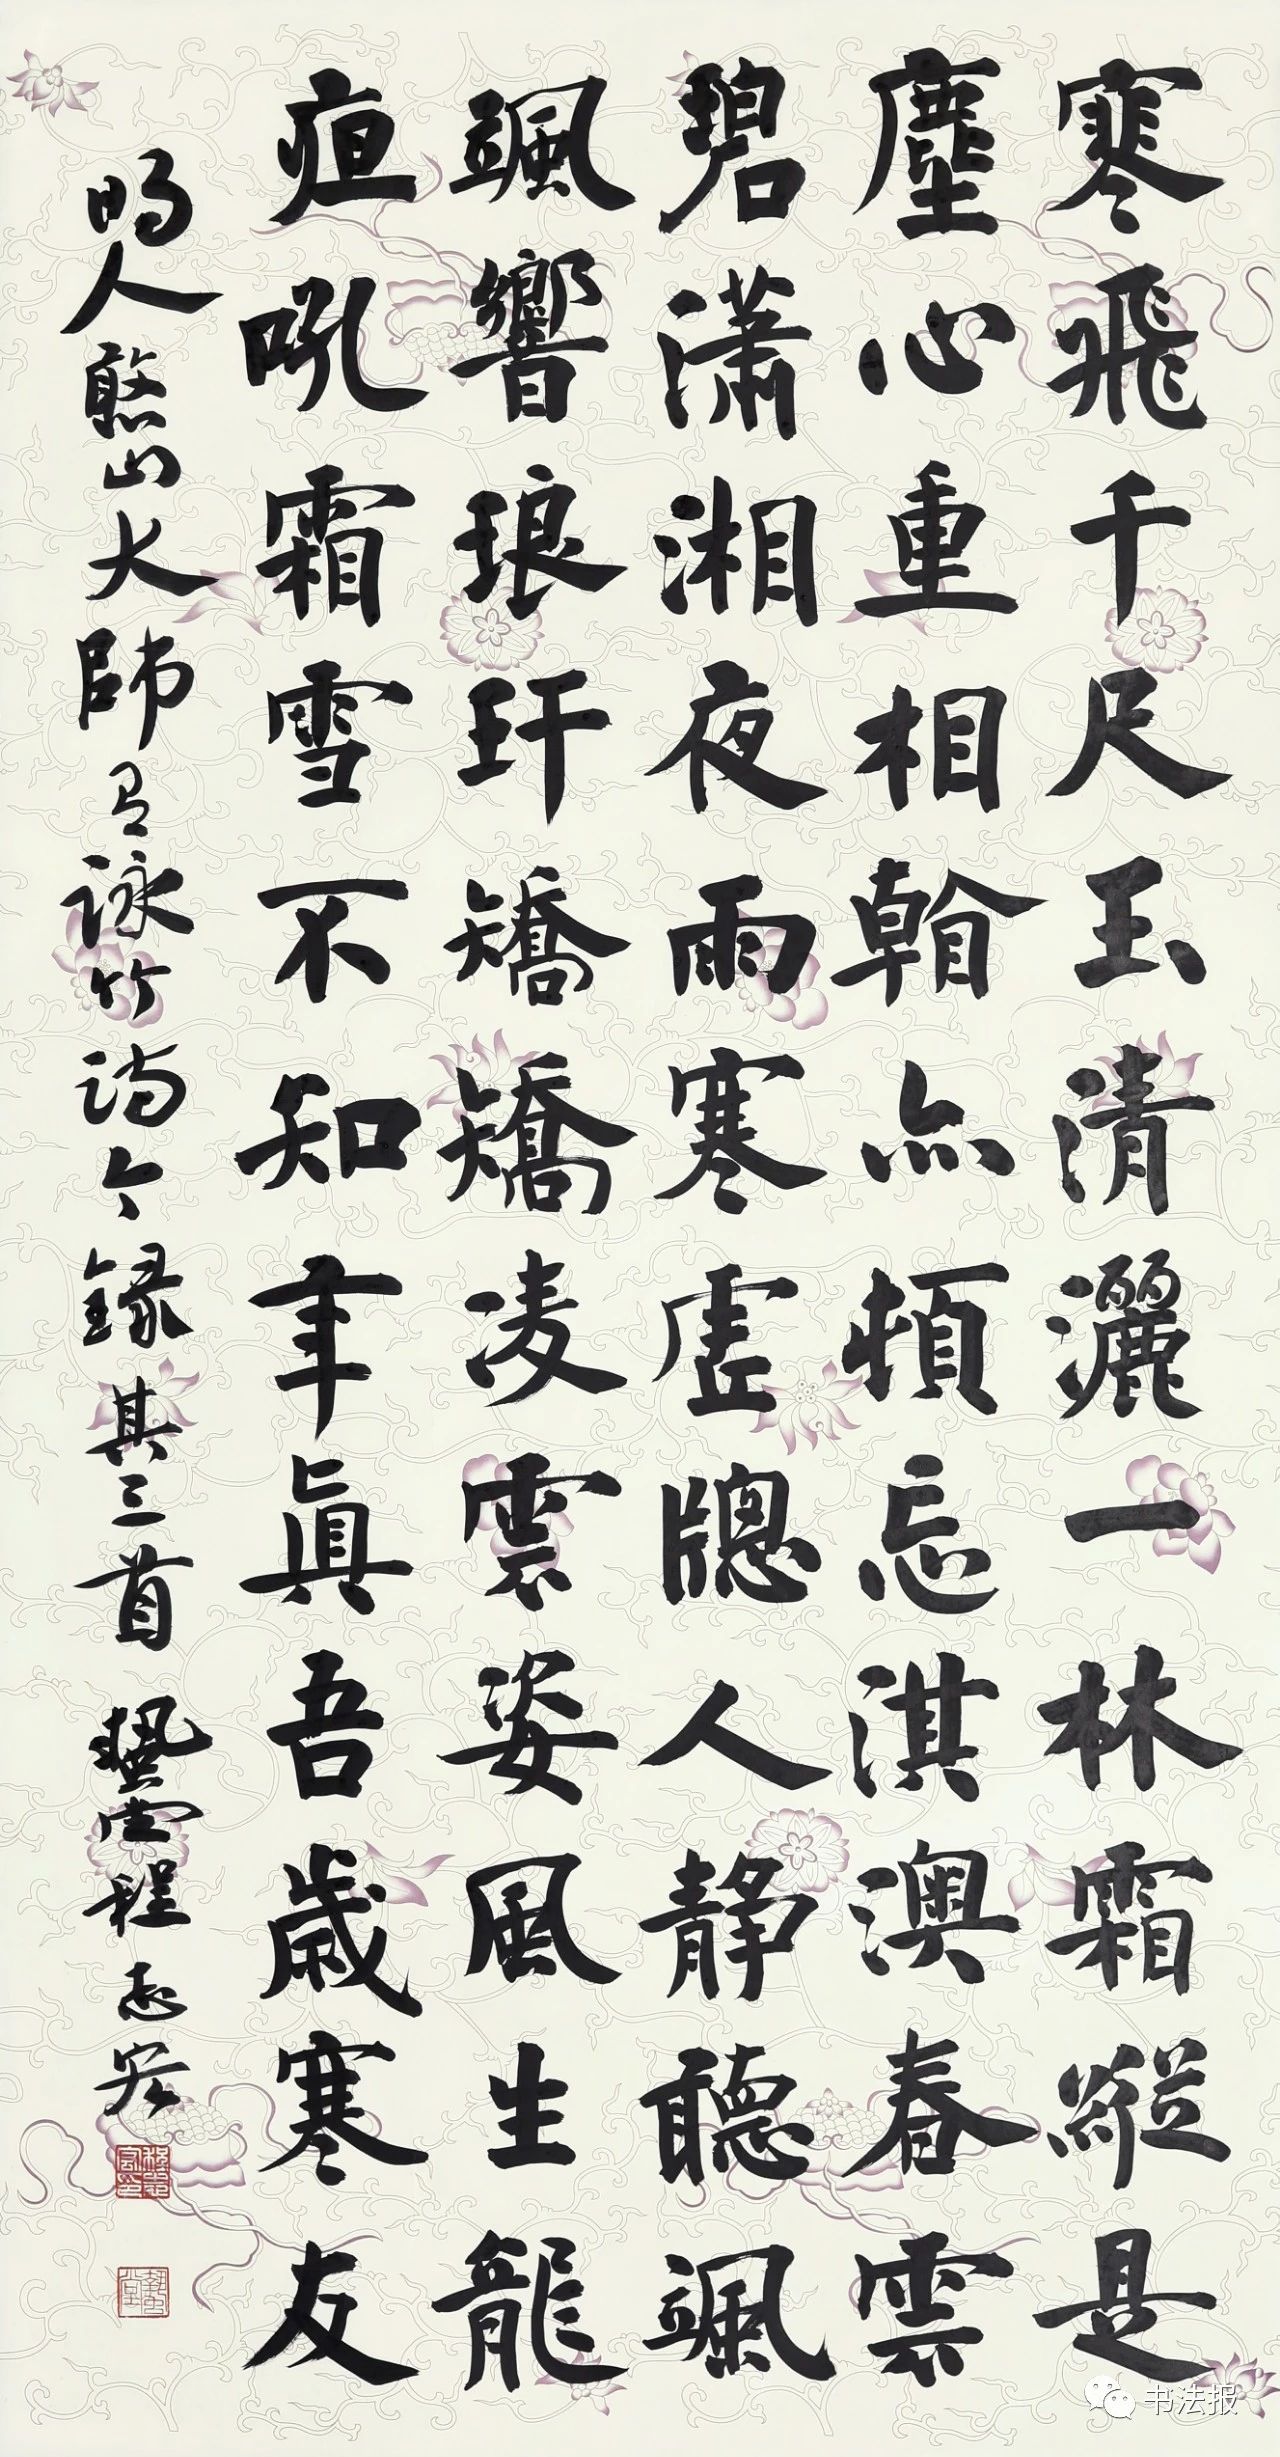 寒飛千尺玉清灑一林霜縱是
塵心重相看亦頓忘淇澳春雲
碧瀟湘夜雨寒虛牕人靜聽颯
颯響琅玕矯矯凌雲姿風生龍
夜吼霜雪不知年真吾歲寒友
明人憨山大師有詠竹詩今錄其三首 執堂程志宏
书法报